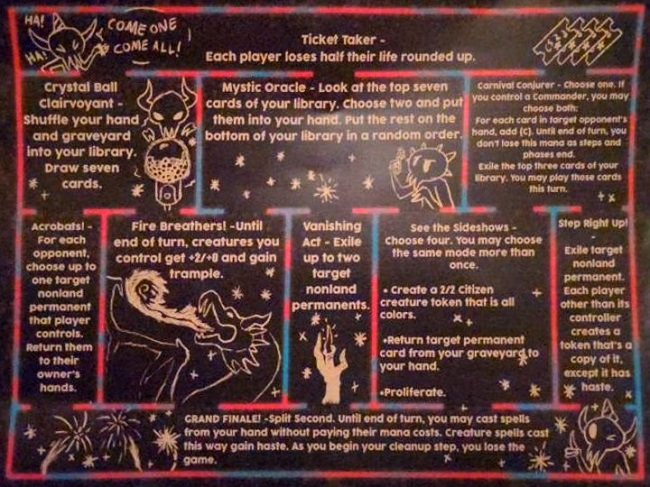 HA!
HA!
COME ONE
COME ALL!
Ticket Taker -
Each player loses half their life rounded up.
Crystal Ball
Clairvoyant -
Shuffle your hand
and graveyard
into your library.
Draw seven
cards.
Mystic Oracle - Look at the top seven
cards of your library. Choose two and put
them into your hand. Put the rest on the
bottom of your library in a random order.
Carnival Conjurer - Choose one. If
you control a Commander, you may
choose both:
For each card in target opponent's
hand, add {C}. Until end of turn, you
don't lose this mana as steps and
phases end.
Exile the top three cards of your
library. You may play those cards
this turn.
Acrobats! -
For each
opponent,
choose up to
one target
nonland
permanent
that player
controls.
Return them
to their
owner's
hands.
Fire Breathers! -Until
end of turn, creatures you
control get +2/+0 and gain
trample.
Vanishing
Act - Exile
up to two
target
nonland
permanents.
See the Sideshows -
Choose four. You may choose
the same mode more than
once.
• Create a 2/2 Citizen
creature token that is all
colors.
•Return target permanent
card from your graveyard to
your hand.
•Proliferate.
Step Right Up!
Exile target
nonland
permanent.
Each player
other than its
controller
creates a
token that's a
copy of it,
except it has
haste.
GRAND FINALE! -Split Second. Until end of turn, you may cast spells
from your hand without paying their mana costs. Creature spells cast
this way gain haste. As you begin your cleanup step, you lose the
game.